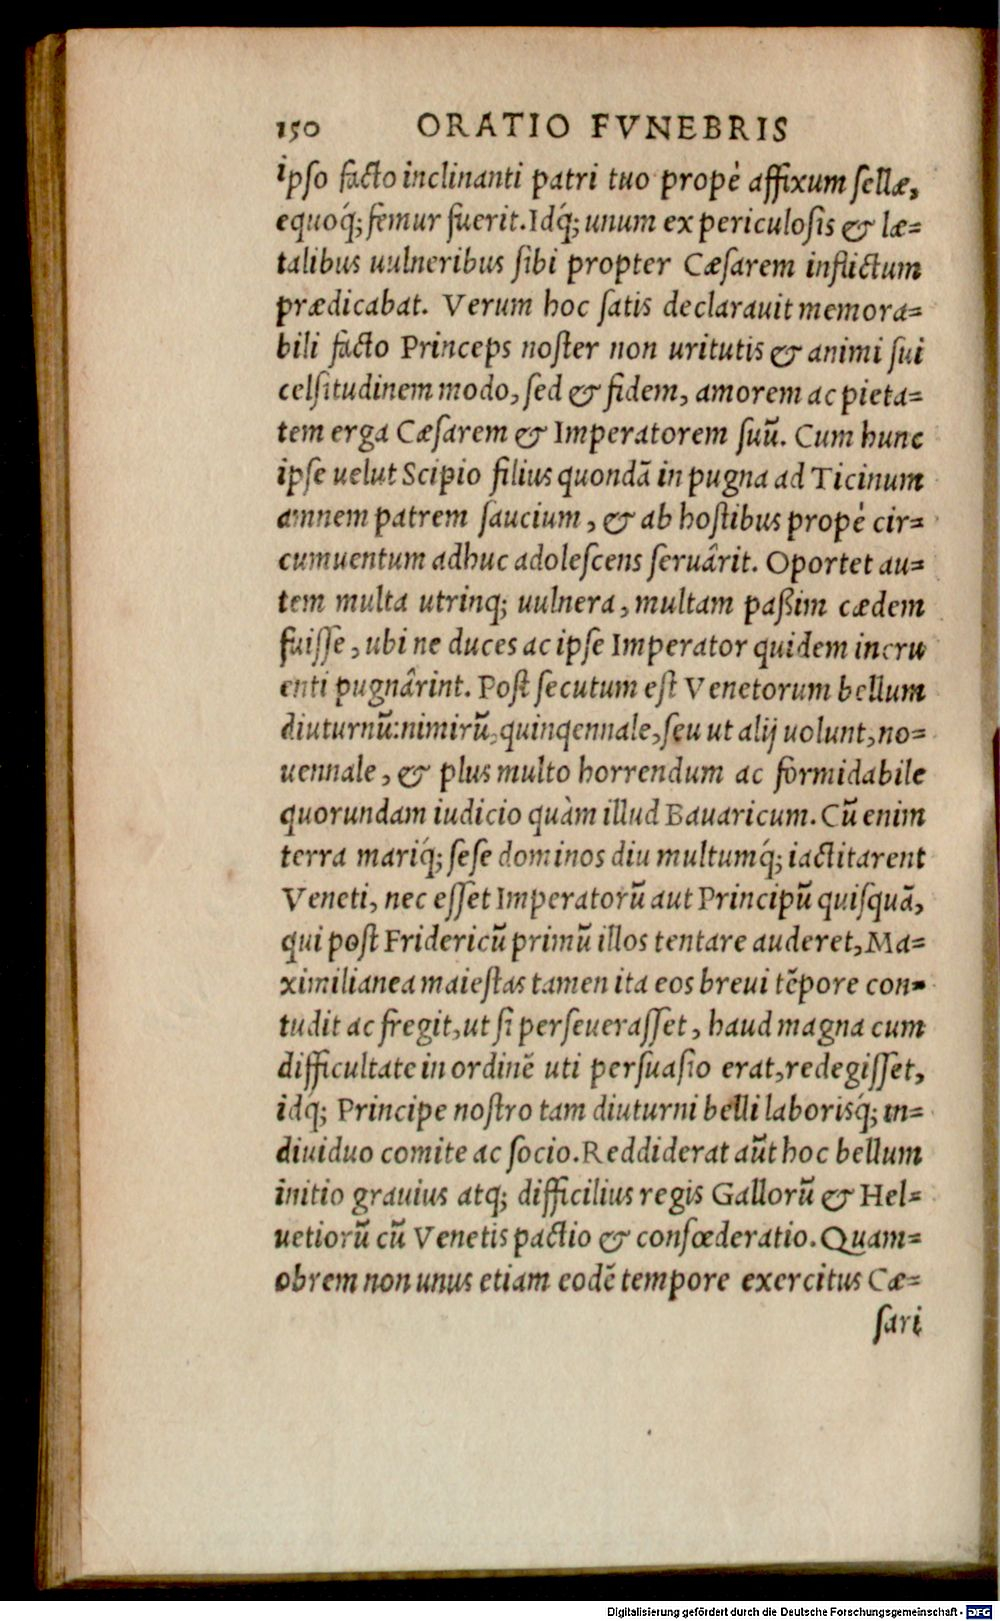 150 ORATIO FVNEBRIS
ipso facto inclinanti patri tuo propè affixum sellæ,
equoq́; femur fuerit. Idq́; unum ex periculosis & læ=
talibus uulneribus sibi propter Cæsarem inflictum
prædicabat. Verum hoc satis declarauit memora=
bili facto Princeps noster non uritutis & animi sui
celsitudinem modo, sed & fidem, amorem ac pieta=
tem erga Cæsarem & Imperatorem suũ. Cum hunc
ipse uelut Scipio filius quondã in pugna ad Ticinum
amnem patrem saucium, & ab hostibus propè cir=
cumuentum adhuc adolescens seruârit. Oportet au=
tem multa utrinq; uulnera, multam paßim cædem
fuisse, ubi ne duces ac ipse Imperator quidem incru
enti pugnârint. Post secutum est Venetorum bellum
diuturnũ: nimirũ, quinqennale, seu ut alij uolunt, no=
uennale, & plus multo horrendum ac formidabile
quorundam iudicio quàm illud Bauaricum. Cũ enim
terra mariq́; sese dominos diu multumq́; iactitarent
Veneti, nec esset Imperatorũ aut Principũ quisquã,
qui post Fridericũ primũ illos tentare auderet, Ma=
ximilianea maiestas tamen ita eos breui tẽpore con=
tudit ac fregit, ut si perseuerasset, haud magna cum
difficultate in ordinẽ uti persuasio erat, redegisset,
idq́; Principe nostro tam diuturni belli laborisq́; in=
diuiduo comite ac socio. Reddiderat aũt hoc bellum
initio grauius atq; difficilius regis Gallorũ & Hel=
uetiorũ cũ Venetis pactio & confœderatio. Quam=
obrem non unus etiam eodẽ tempore exercitus Cæ=
sari
Digitalisierung gefördert durch die Deutsche Forschungsgemeinschaft - DFG